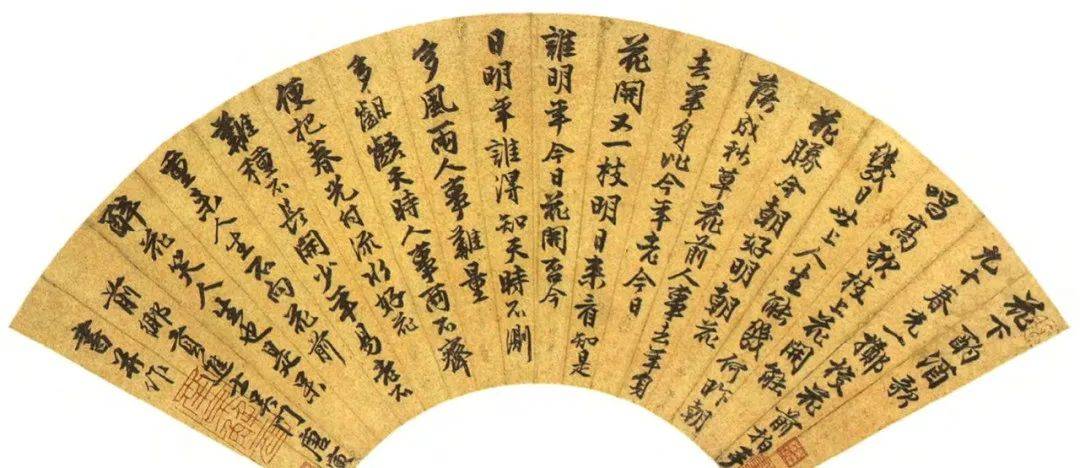 花下酌酒歌
九十春光一擲梭花前拍手
唱高歌枝上花開能
幾日世上人生能幾何昨朝
花勝今朝好明朝花
落成秋草花前人事去年身
去年身比今年老今日
花開又一枝明日來看知是
誰明年今日花開否今
日明年誰得知天時不測
多風雨人事難量
多齟齬天時人事兩不齊
便把春光付流水好花
難種不長開少年易老不
重來人生不向花前
醉花笑人生也是呆
前鄉貢進士吳門唐寅
書并作